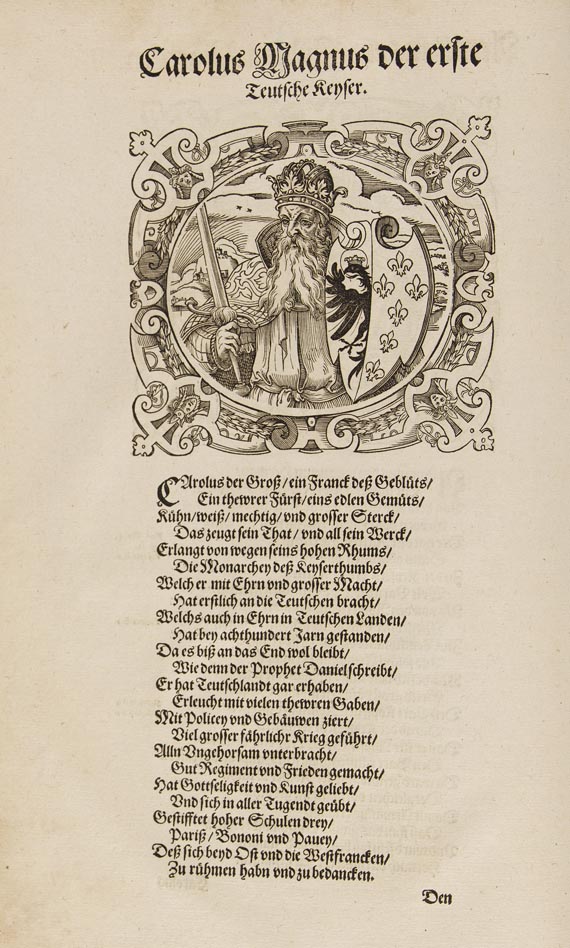 Carolus Magnus der erste
Teutsche Keyser.
CArolus der Groß/ ein Franck deß Geblüts/
Ein thewrer Fürst/ eins edlen Gemüts/
Kühn/ weiß/ mechtig/ vnd grosser Sterck/
Das zeugt sein That/ vnd all sein Werck/
Erlangt von wegen seins hohen Rhums/
Die Monarchey deß Keyserthumbs/
Welch er mit Ehrn vnd grosser Macht/
Hat erstlich an die Teutschen bracht/
Welchs auch in Ehrn in Teutschen Landen/
Hat bey achthundert Jarn gestanden/
Da es biß an das End wol bleibt/
Wie denn der Prophet Daniel schreibt/
Er hat Teutschlandt gar erhaben/
Erleucht mit vielen thewren Gaben/
Mit Policey vnd Gebäuwen ziert/
Viel grosser fährlichr Krieg geführt/
Alln Vngehorsam vnterbracht/
Gut Regiment vnd Frieden gemacht/
Hat Gottseligkeit vnd Kunst geliebt/
Vnd sich in aller Tugendt geübt/
Gestifftet hoher Schulen drey/
Pariß/ Bononi vnd Pauey/
Deß sich beyd Ost vnd die Westfrancken/
Zu rühmen habn vnd zu bedancken.
Den